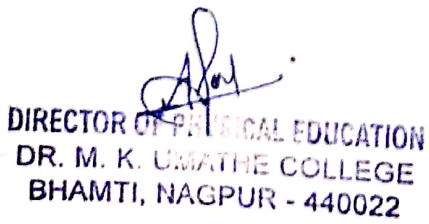 DIRECTOR OF PHYSICAL EDUCATION
DR. M. K. UMATHE COLLEGE
BHAMTI, NAGPUR - 440022